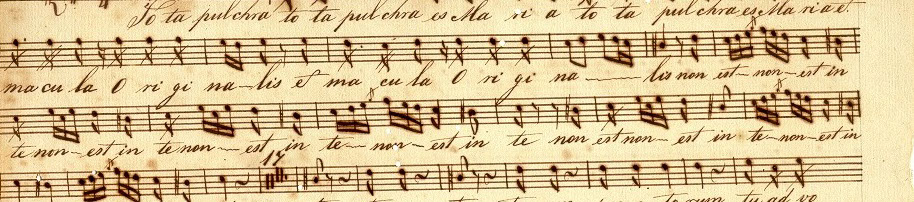 To ta pulchra to ta pulchra es Ma ri a to ta pulchra es Ma ri a et
ma cu la O ri gi na-lis et ma cu la O ri gi na lis non est-non-est in
te non-est in te non-est in te-non-est in te non est non-est in te-non-est in
17
rum tu ad vo